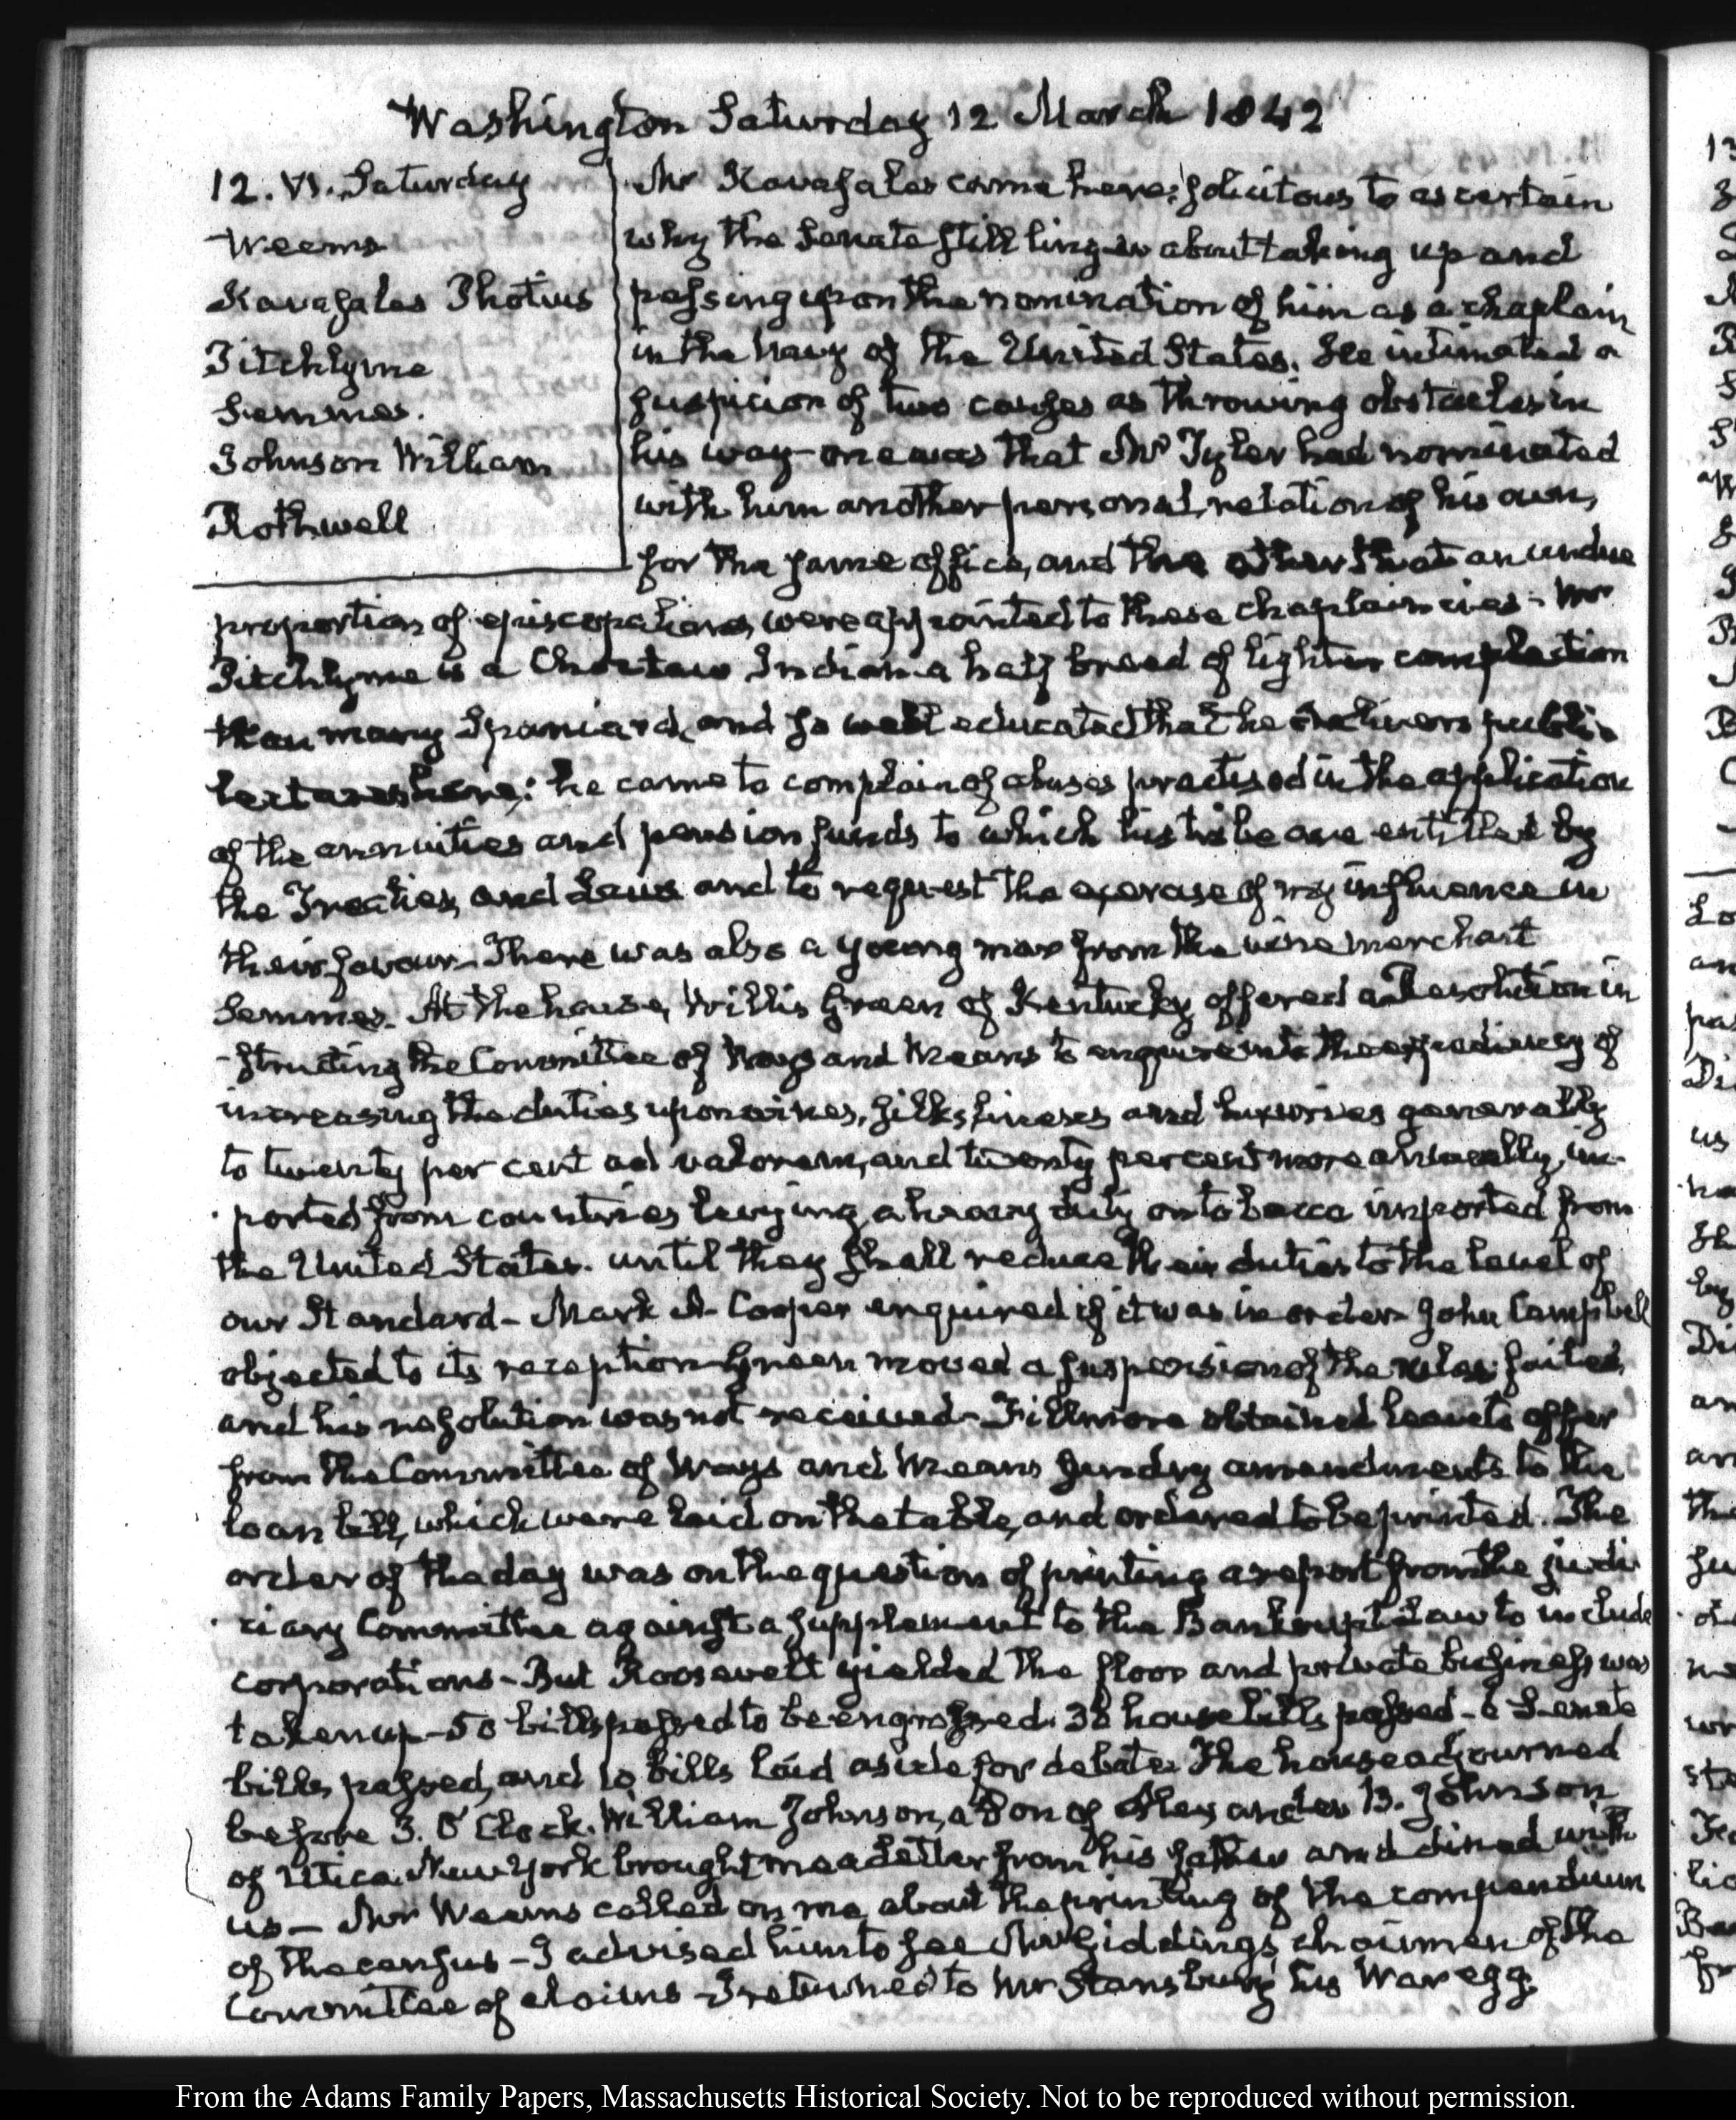 Washington Saturday 12 March 1842
12. VI. Saturday
Weems
Kavasales Photius
Pitchlynne
Semmes.
Johnson William
Rothwell
Mr Kavasales came here; solicitous to ascertain
why the Senate still linger about taking up and
passing upon the nomination of him as a chaplain
in the Navy of the United States. He intimated a
suspicion of two causes as throwing obstacles in
his way— one was that Mr Tyler had nominated
with him another personal relation of his own,
for the same office, and the other that an undue
proportion of episcopalians were appointed to these chaplaincies— Mr
Pitchlynne is a Choctaw Indian a half breed of lighter complection
than many Spaniard, and so well educated that he delivers public
lectures here: he came to complain of abuses practised in the application
of the annuities and pension funds to which his tribe are entitled by
the Treaties, and Laws and to request the exercise of my influence in
their favour— There was also a young man from the wine merchant
Semmes. At the house, Willis Green of Kentucky offered a Resolution in
-structing the Committee of Ways and Means to enquire into the expediency of
increasing the duties upon wines, silks, linens and luxuries generally
to twenty per cent ad valorem, and twenty per cent more annually, im-
-ported from countries levying a heavy duty on tobacco imported from
the United States. until they shall reduce their duties to the level of
our Standard— Mark A. Cooper enquired if it was in order— John Campbell
objected to its reception— Green moved a suspension of the rules: failed,
and his resolution was not received— Fillmore obtained leave to offer
from the Committee of Ways and Means sundry amendments to the
loan bill, which were laid on the table, and ordered to be printed. The
order of the day was on the question of printing a report from the judi
-ciary Committee against a supplement to the Bankrupt Law to include
corporations— But Roosevelt yielded the floor and private business was
taken up— 50 bills passed to be engrossed. 38 house bills passed— 6 Senate
bills passed, and 10 bills laid aside for debate. The house adjourned
before 3. O'Clock. William Johnson, a Son of Alexander B. Johnson
of Utica New York brought me a Letter from his father and dined with
us— Mr Weems called on me about the printing of the compendium
of the census— I advised him to see Mr Giddings, chairman of the
Committee of claims— I returned to Mr Stansbury his War egg.
From the Adams Family Papers, Massachusetts Historical Society. Not to be reproduced without permission.